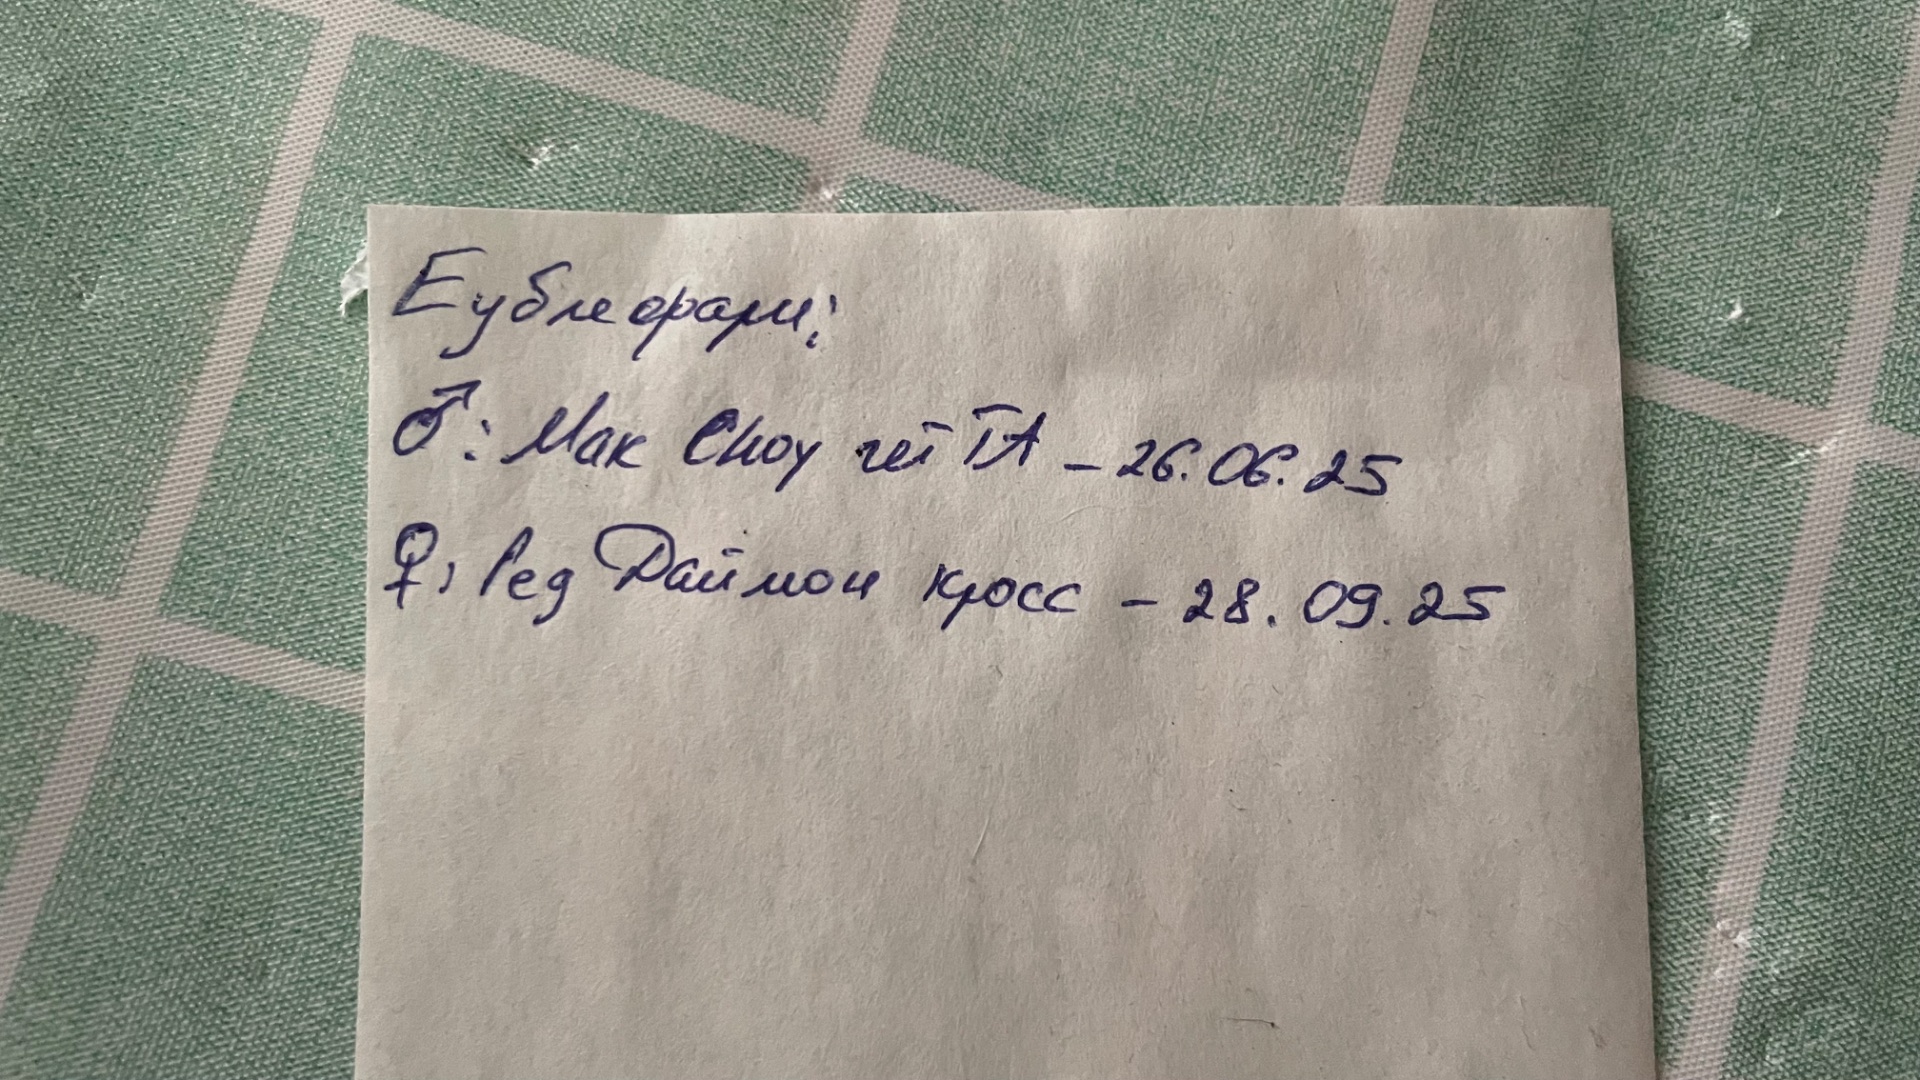 Еублефари:
♂: Мак Сноу гет ТА - 26.06.25
♀: Ред Даймон кросс - 28.09.25